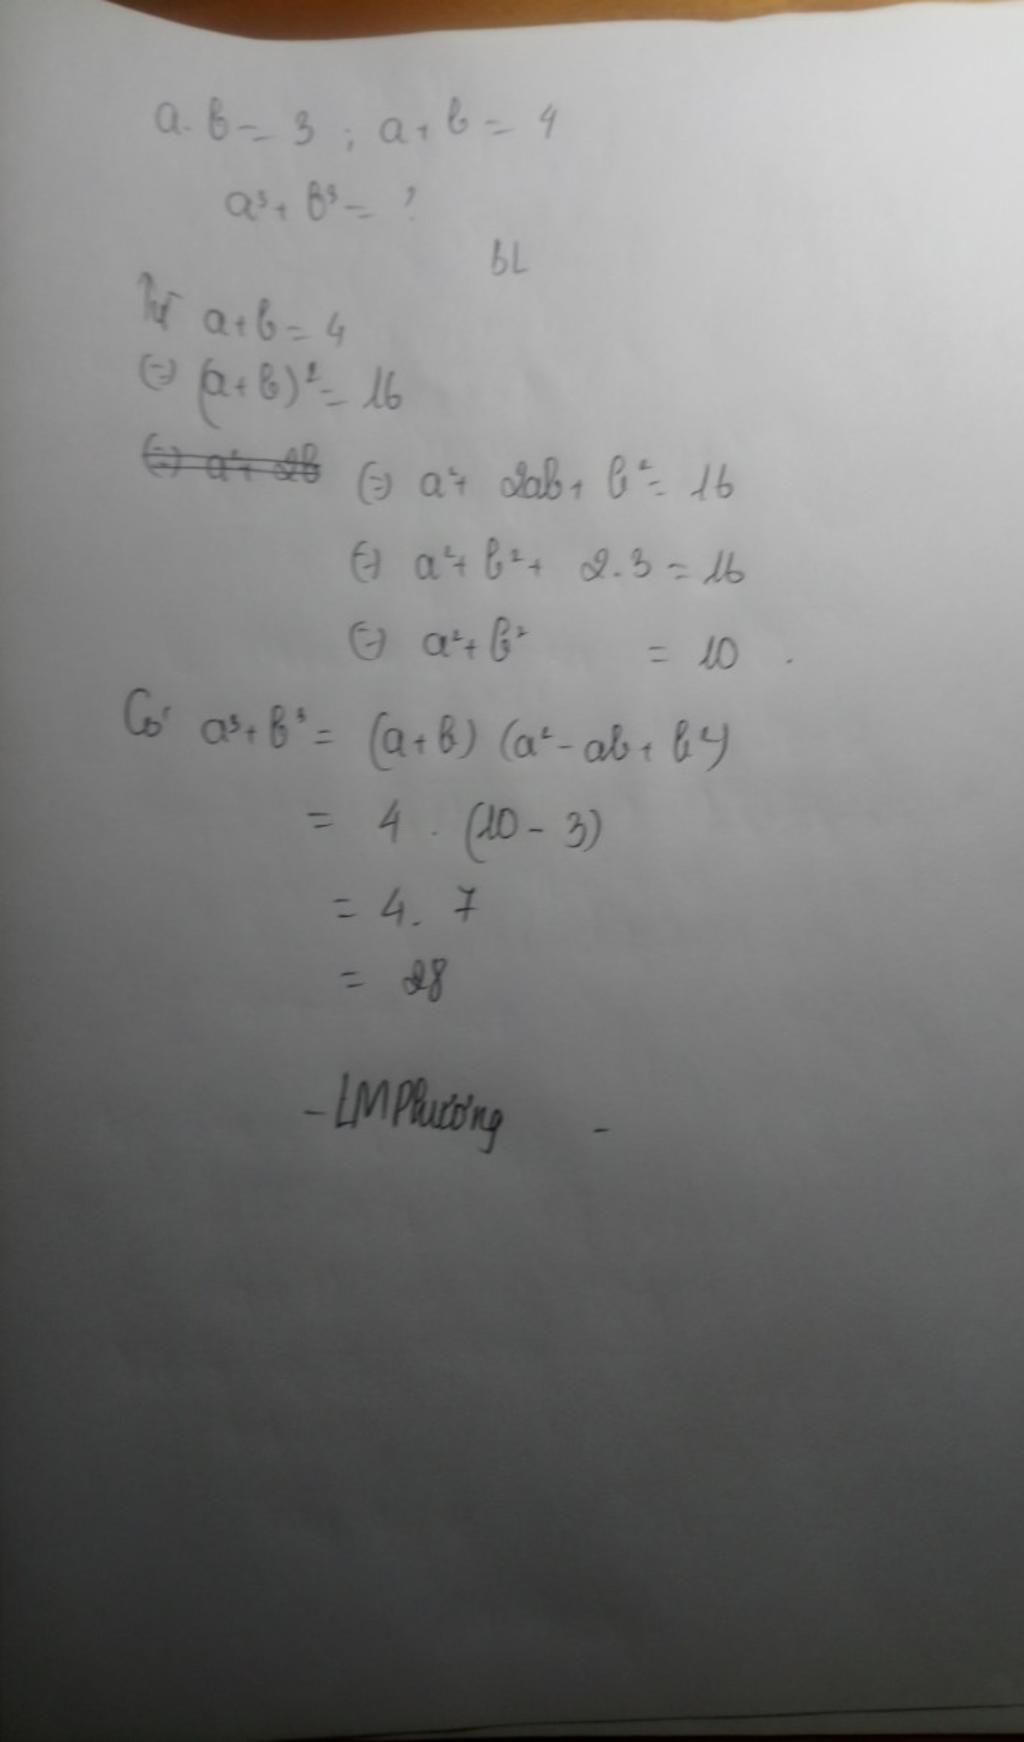 a.b = 3 ; a+b = 4
a³+b³ = ?
bL
Từ a+b = 4
(=) (a+b)² = 16
(=) a²+ 2b (=) a²+ 2ab+ b² = 16
(=) a²+b²+ 2.3 = 16
(=) a²+b² = 10 .
Có a³+b³ = (a+b) (a²-ab+b²)
= 4 . (10-3)
= 4. 7
= 28
- LMPhương -